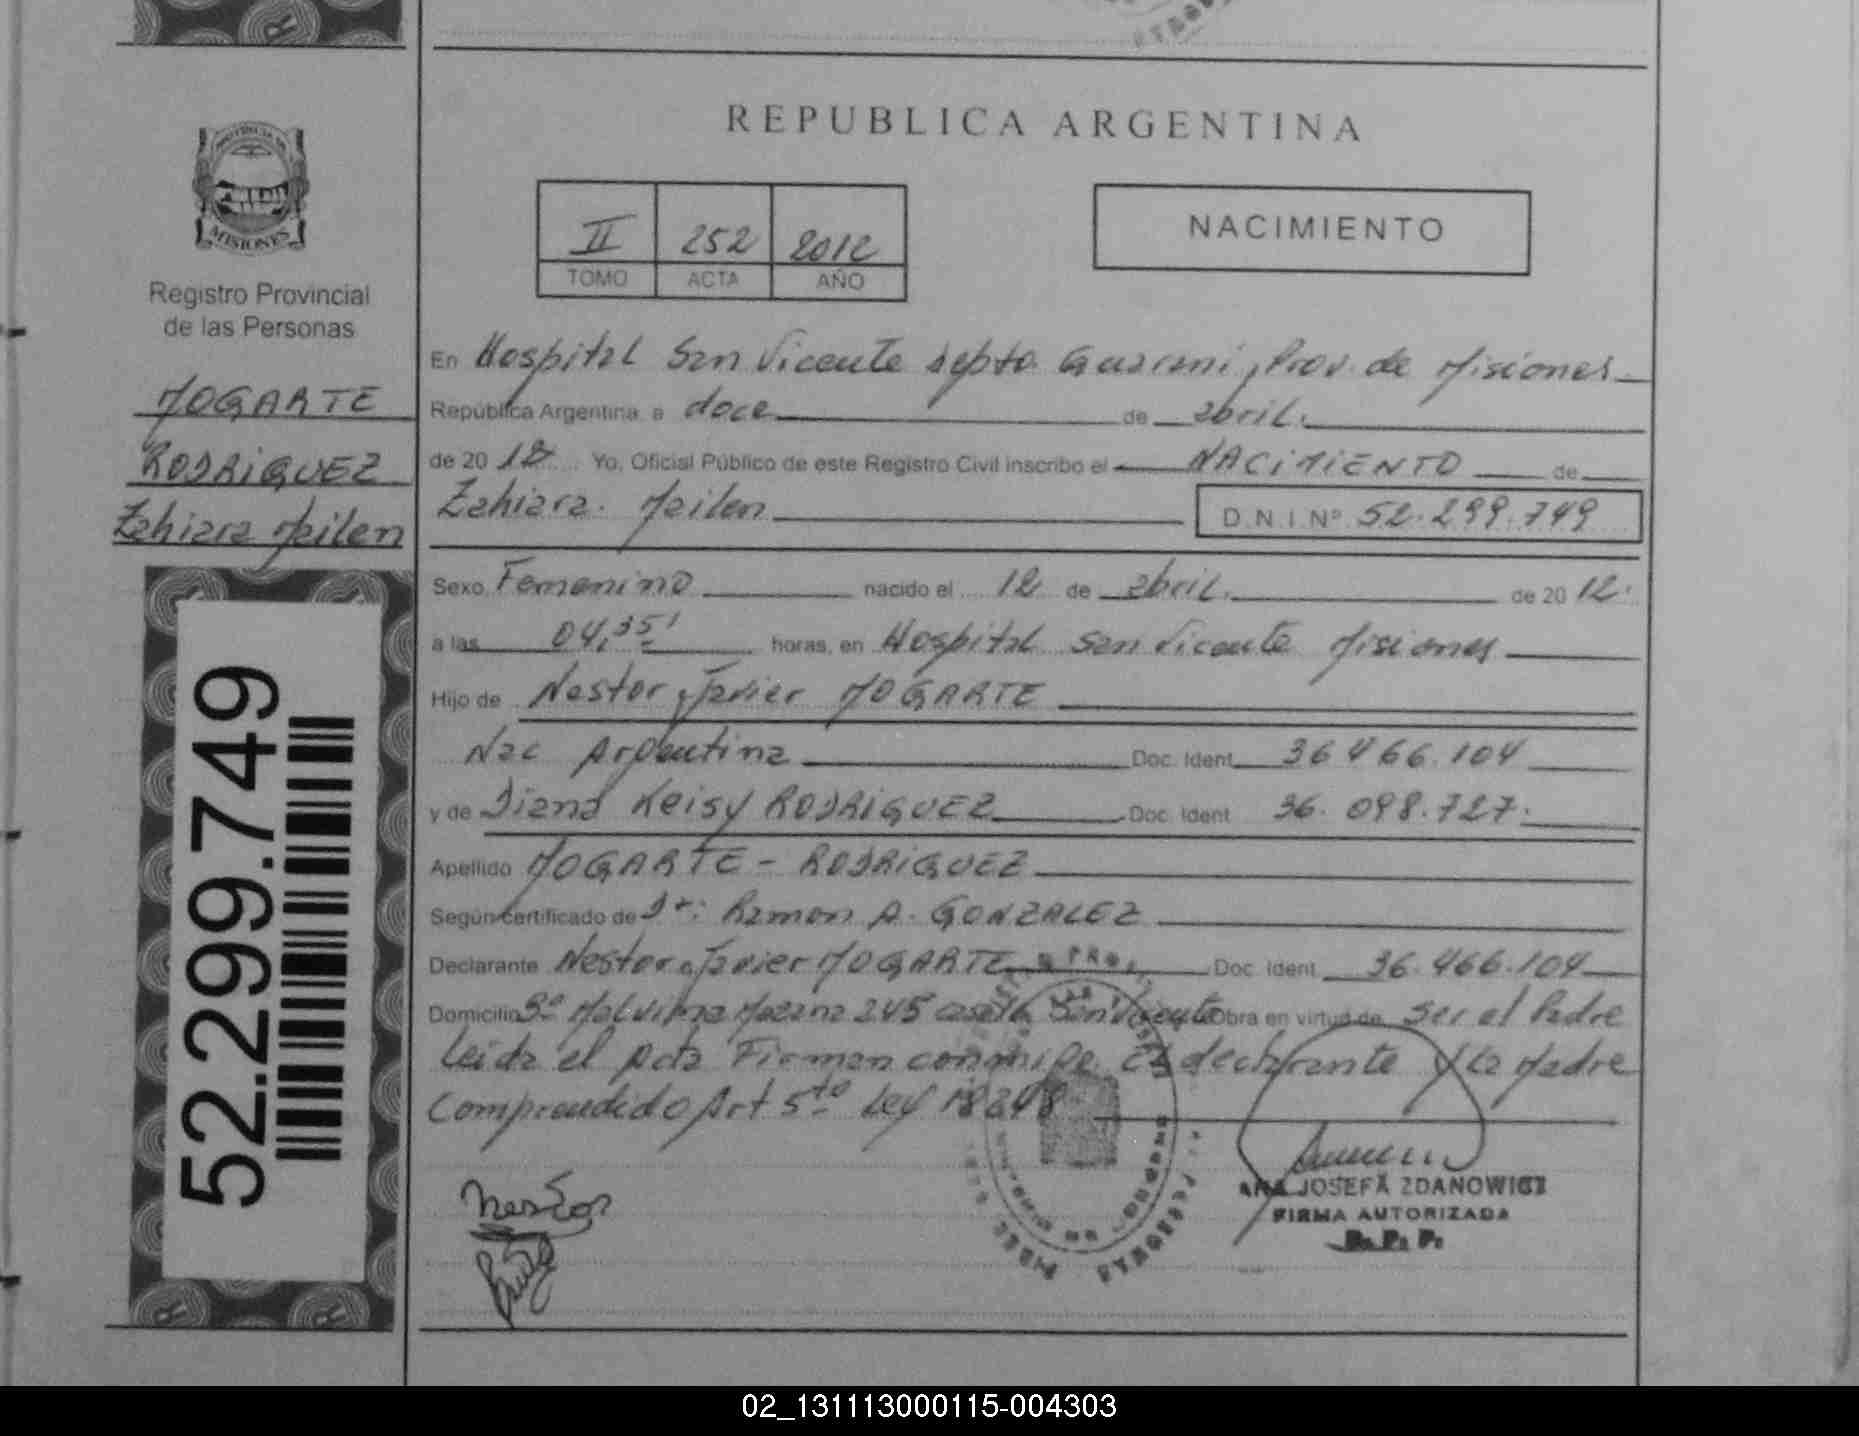 REPUBLICA ARGENTINA
II 252 2012
TOMO ACTA AÑO
NACIMIENTO
PROVINCIA DE
MISIONES
Registro Provincial
de las Personas
MOGARTE
RODRIGUEZ
Zahiara Mailen
52.299.749
En Hospital San Vicente depto. Guarani, Prov. de Misiones
República Argentina, a doce de abril.
de 20 12 Yo, Oficial Público de este Registro Civil inscribo el NACIMIENTO de
Zahiara Mailen D.N.I.Nº 52.299.749
Sexo Femenino nacido el 12 de abril. de 20 12.
a las 04,35' horas, en Hospital San Vicente Misiones
Hijo de Nestor Javier MOGARTE
Nac Argentina Doc. Ident. 36 466.104
y de Diana Keisy RODRIGUEZ Doc. Ident 36.098.727.
Apellido MOGARTE - RODRIGUEZ
Según certificado de Dr: Ramon A. GONZALEZ
Declarante Nestor Javier MOGARTE Doc. Ident. 36.466.104
Domicilio Bº Malvina 245 San Vicente Obra en virtud de ser el Padre
Leida el Acta Firman conmigo el declarante y la Madre
Comprendido Art 5to Ley 18248
Nestor
ANA JOSEFA ZDANOWICZ
FIRMA AUTORIZADA
R. P. P.
02_131113000115-004303